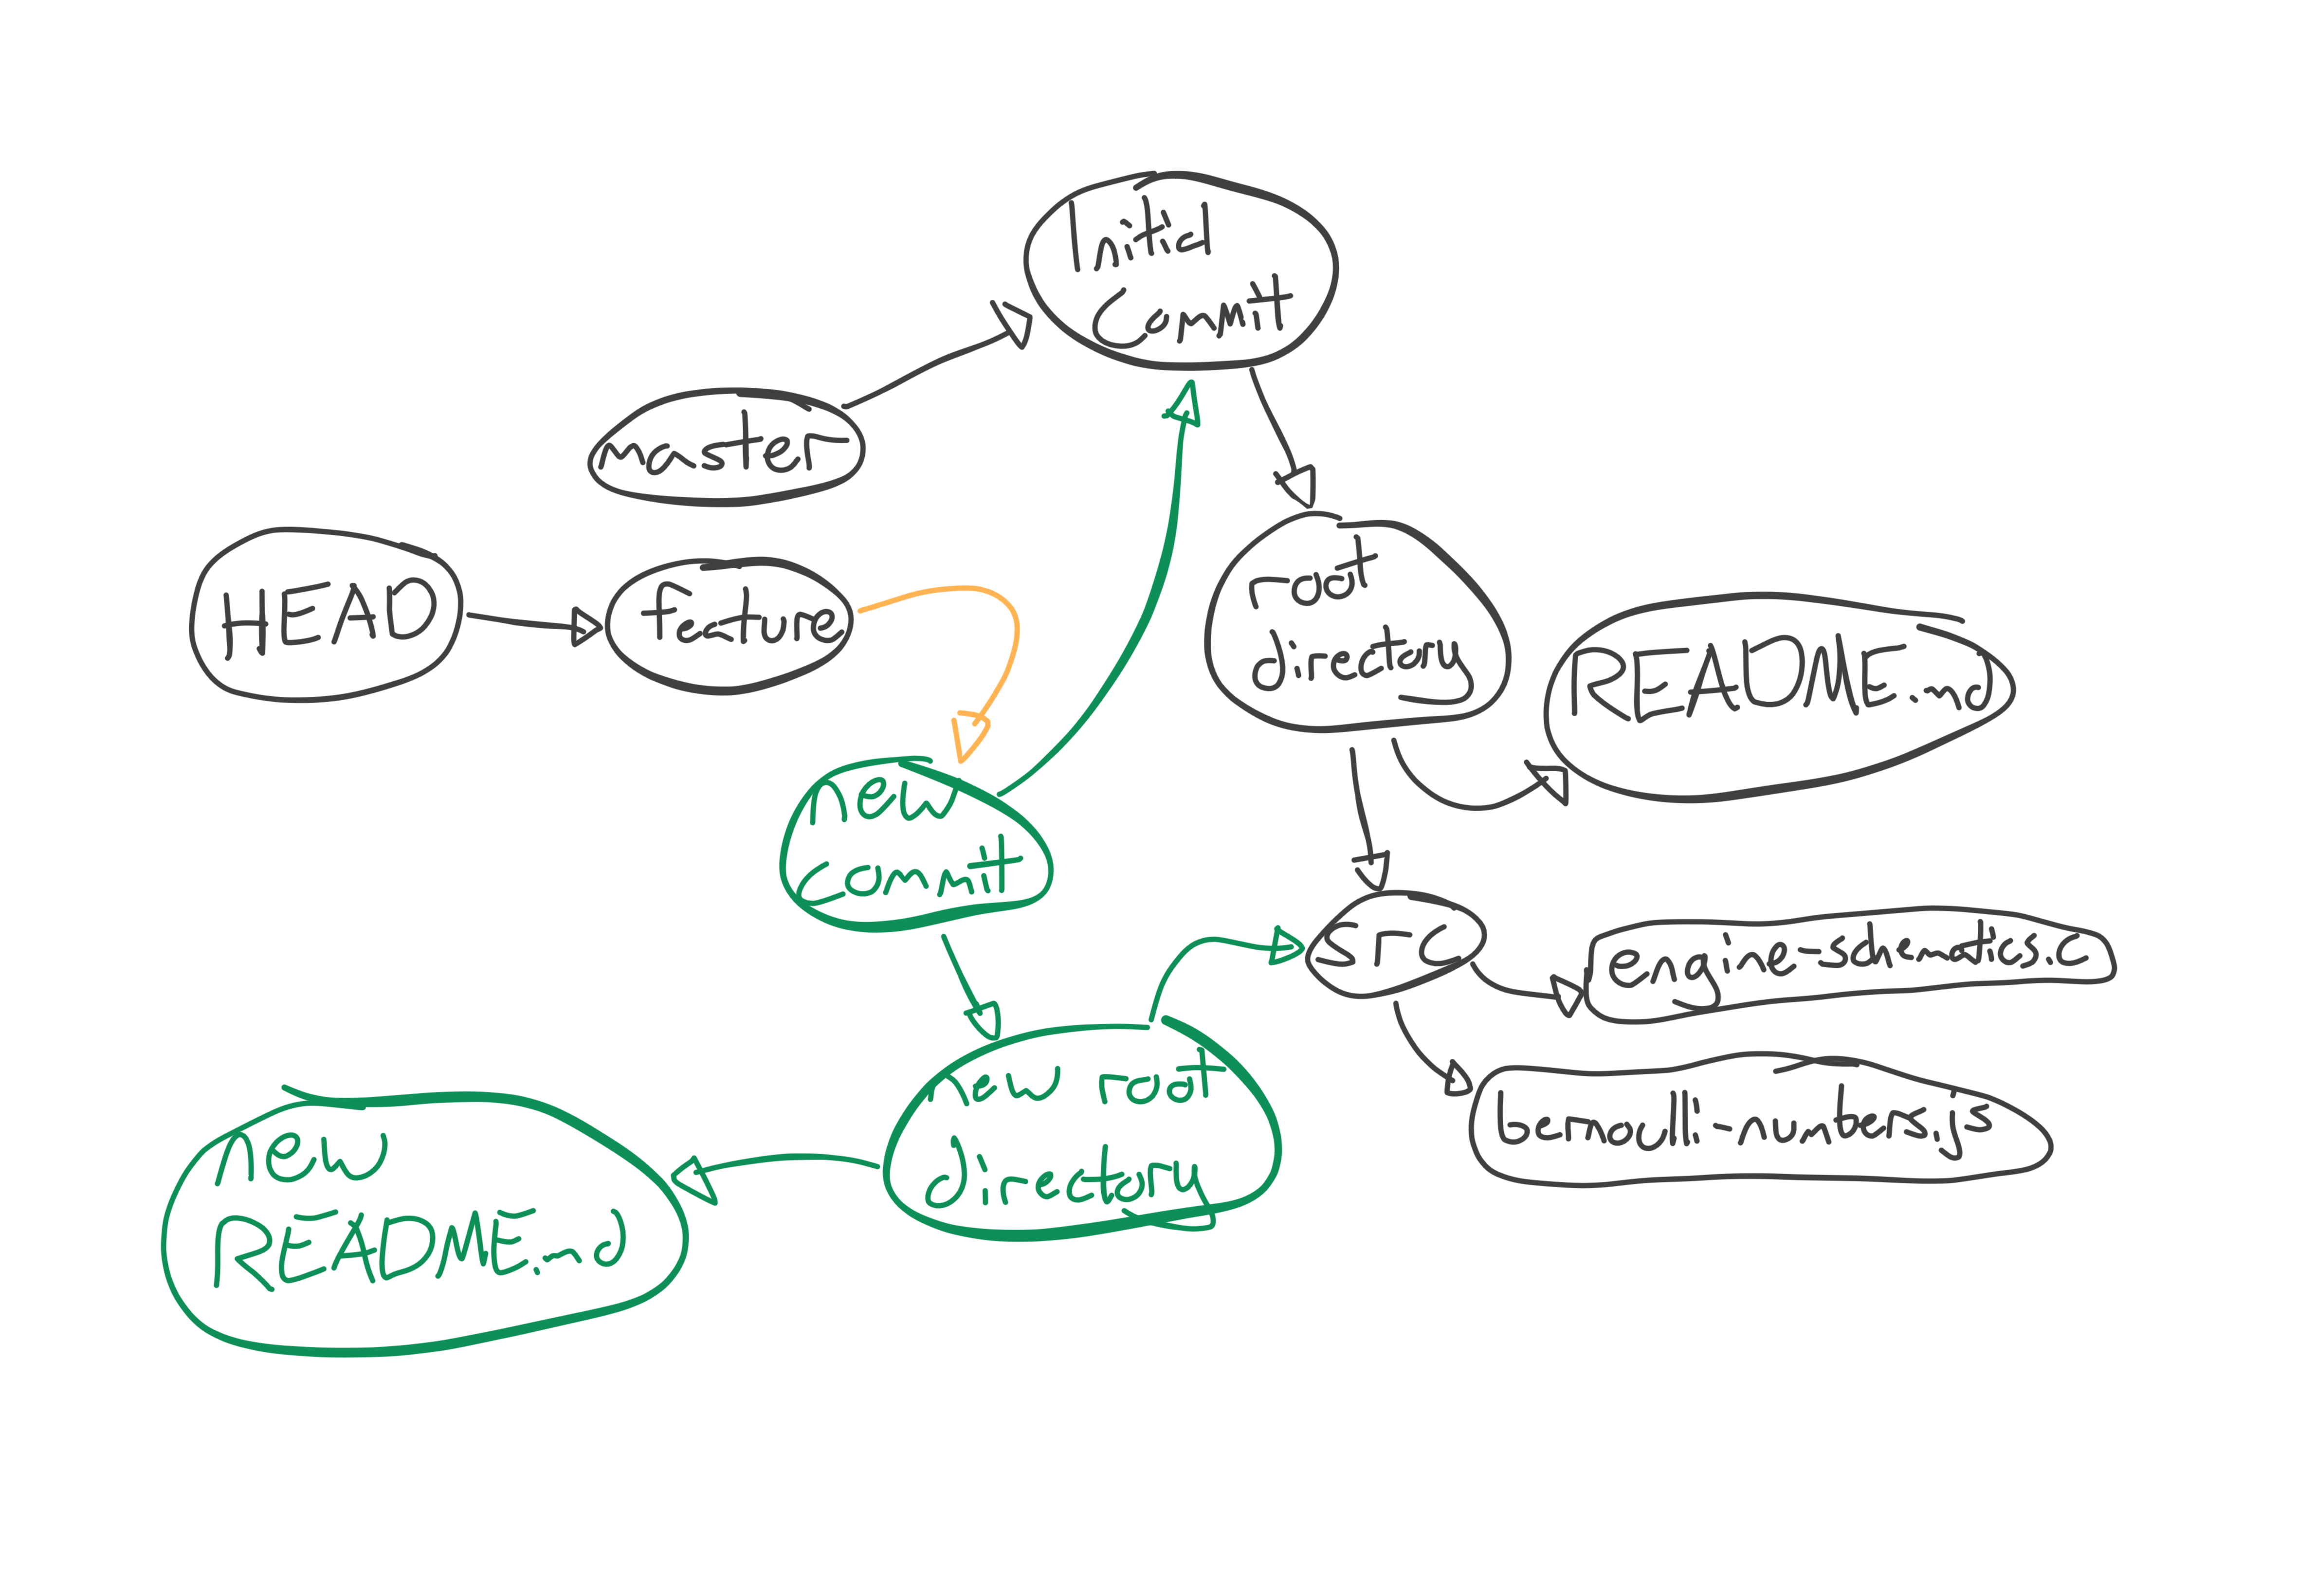 Initial
Commit
master
HEAD
feature
root
directory
README.md
new
commit
src
engine-schematics.c
bernoulli-numbers.js
new root
directory
new
README.md